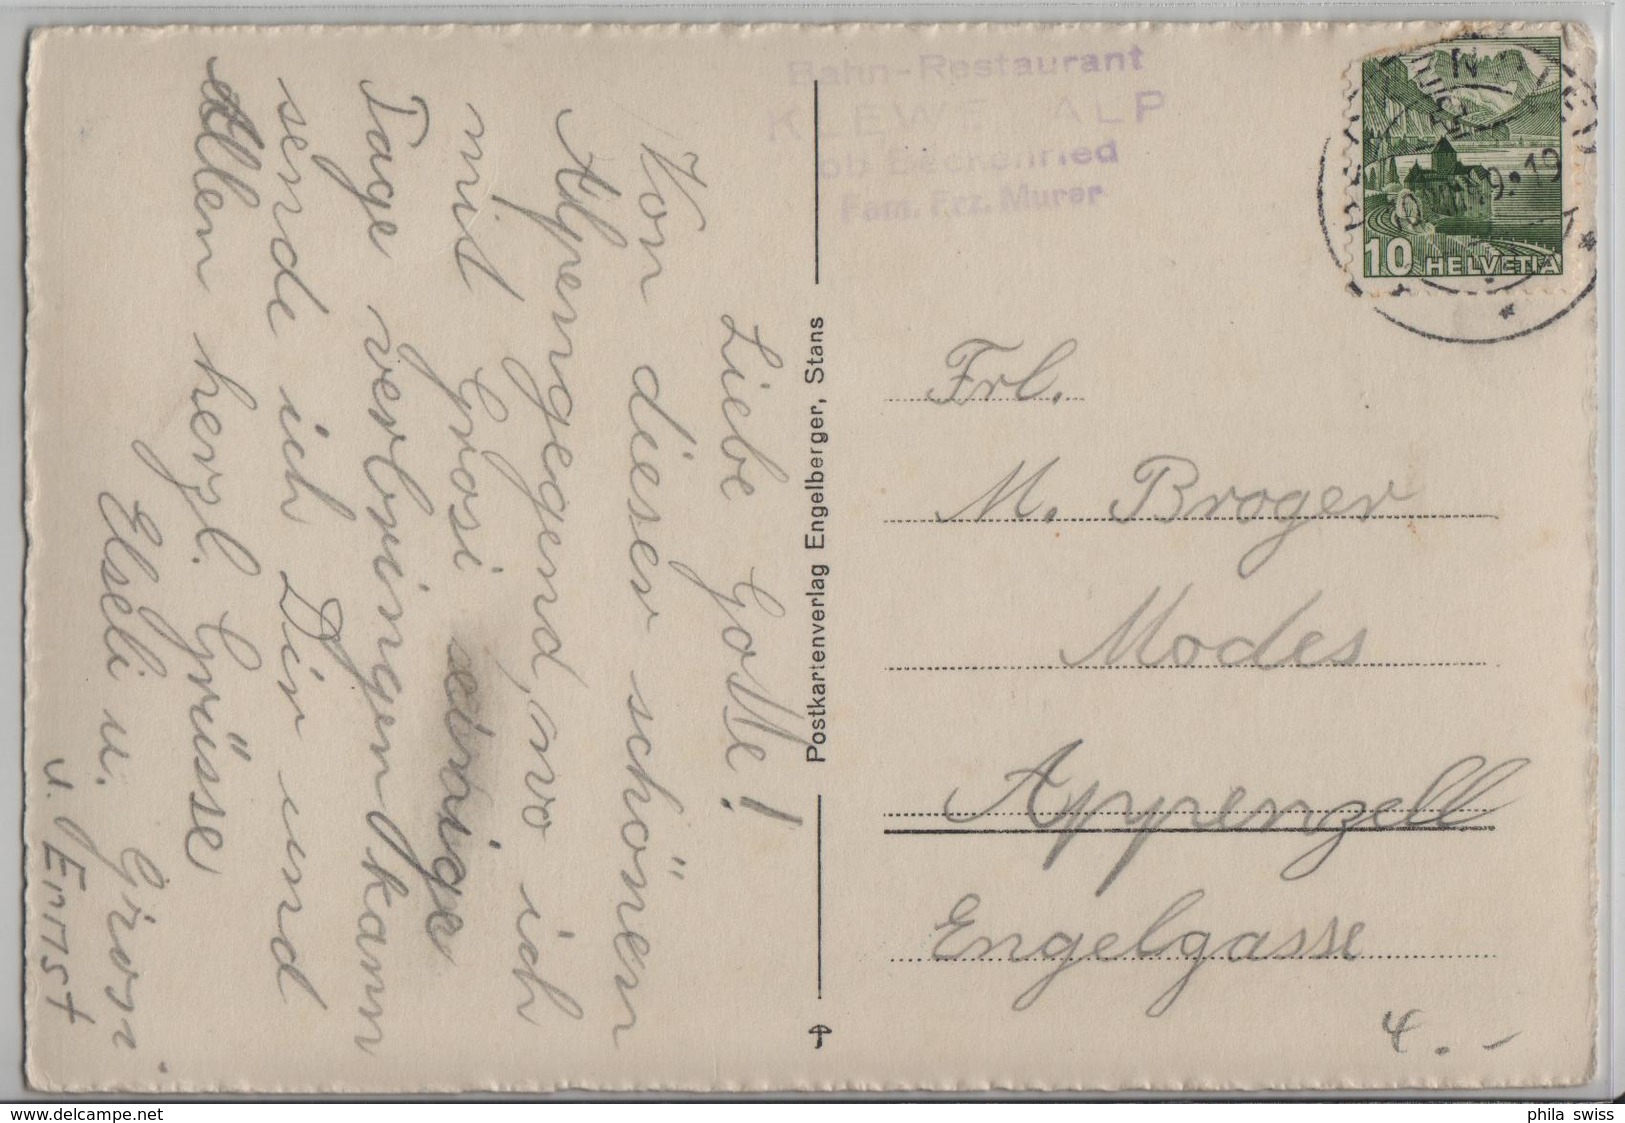 Liebe Gotte!
Von dieser schönen
Alpengegend, wo ich
mit Grosi einige
Tage verbringen kann
sende ich Dir und
Allen herzl. Grüsse
Elseli u. Grosi.
u. Ernst
Postkartenverlag Engelberger, Stans
Bahn-Restaurant
KLEWENALP
ob Beckenried
Fam. Frz. Murer
10 HELVETIA
Frl.
M. Broger
Modes
Appenzell
Engelgasse
4.-
www.delcampe.net
phila_swiss